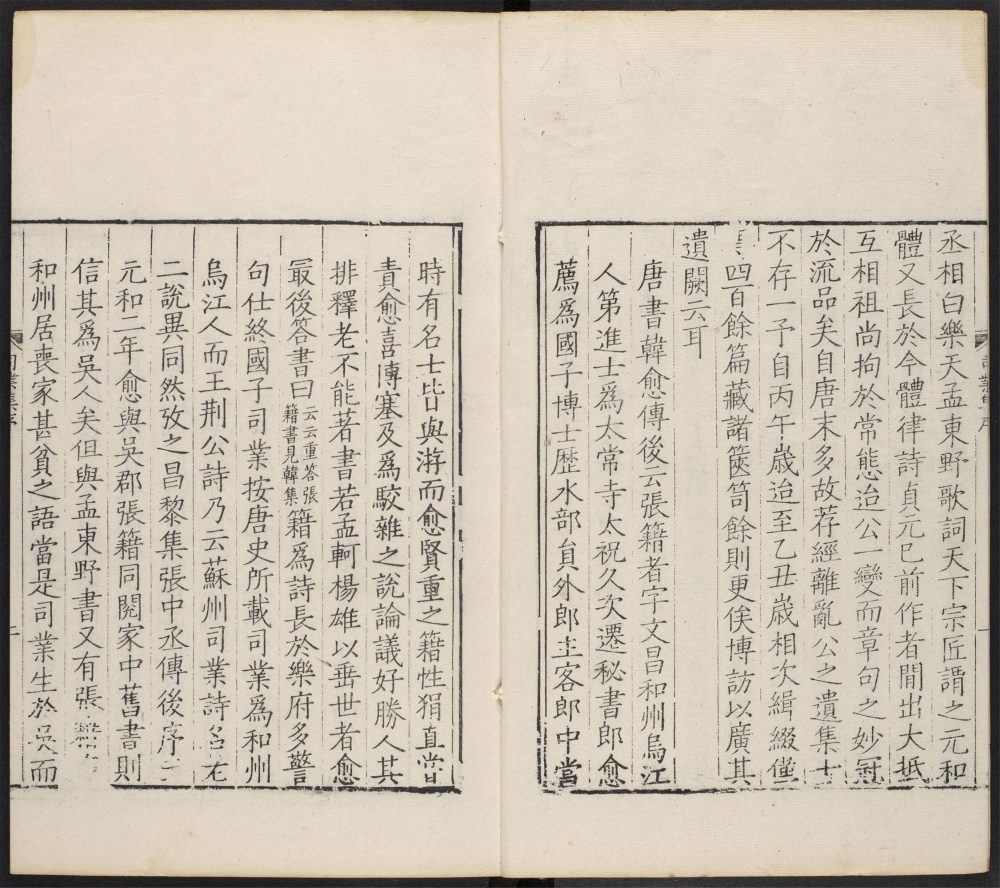 丞相白樂天孟東野歌詞天下宗匠謂之元和
體又長於今體律詩貞元已前作者間出大抵
互相祖尚拘於常態迨公一變而章句之妙冠
於流品矣自唐末多故荐經離亂公之遺集十
不存一予自丙午歳迨至乙丑歳相次緝綴僅
四百餘篇藏諸篋笥餘則更俟博訪以廣其
遺闕云耳
唐書韓愈傳後云張籍者字文昌和州烏江
人第進士爲太常寺太祝久次遷秘書郎愈
薦爲國子博士歷水部員外郎主客郎中當
詩業集序
一
時有名士皆與游而愈賢重之籍性狷直嘗
責愈喜博塞及爲駮雜之說論議好勝人其
排釋老不能著書若孟軻楊雄以垂世者愈
最後答書曰云云重答張籍書見韓集籍爲詩長於樂府多警
句仕終國子司業按唐史所載司業爲和州
烏江人而王荆公詩乃云蘇州司業詩名老
二說異同然攷之昌黎集張中丞傳後序
元和二年愈與吳郡張籍同閱家中舊書則
信其爲吳人矣但與孟東野書又有張籍在
和州居喪家甚貧之語當是司業生於吳而